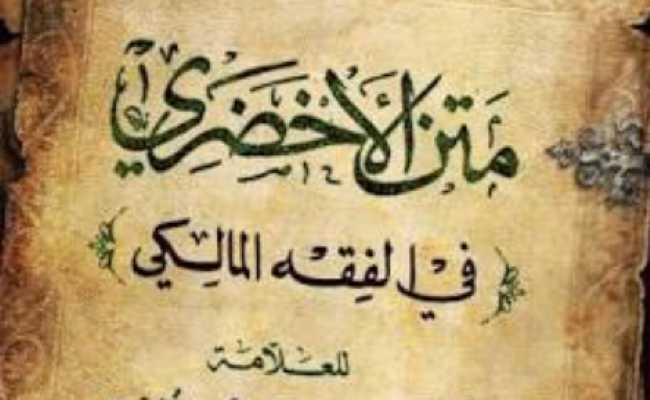 متن الأخضري
في الفقه المالكي
للعلامة